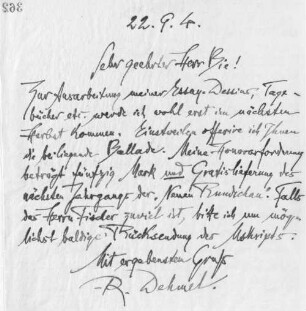 362
22. 9. 4.
Sehr geehrter Herr Bie!
Zur Ausarbeitung meiner Essay-Dessins, Tage-
bücher etc. werde ich wohl erst im nächsten
Herbst kommen. Einstweilen offerire ich Ihnen
die beiliegende Ballade. Meine Honorarforderung
beträgt fünfzig Mark und Gratislieferung des
nächsten Jahrgangs der „Neuen Rundschau“. Falls
das Herrn Fischer zuviel ist, bitte ich um mög-
lichst baldige Rücksendung des Mskripts.
Mit ergebenstem Gruß
R. Dehmel.